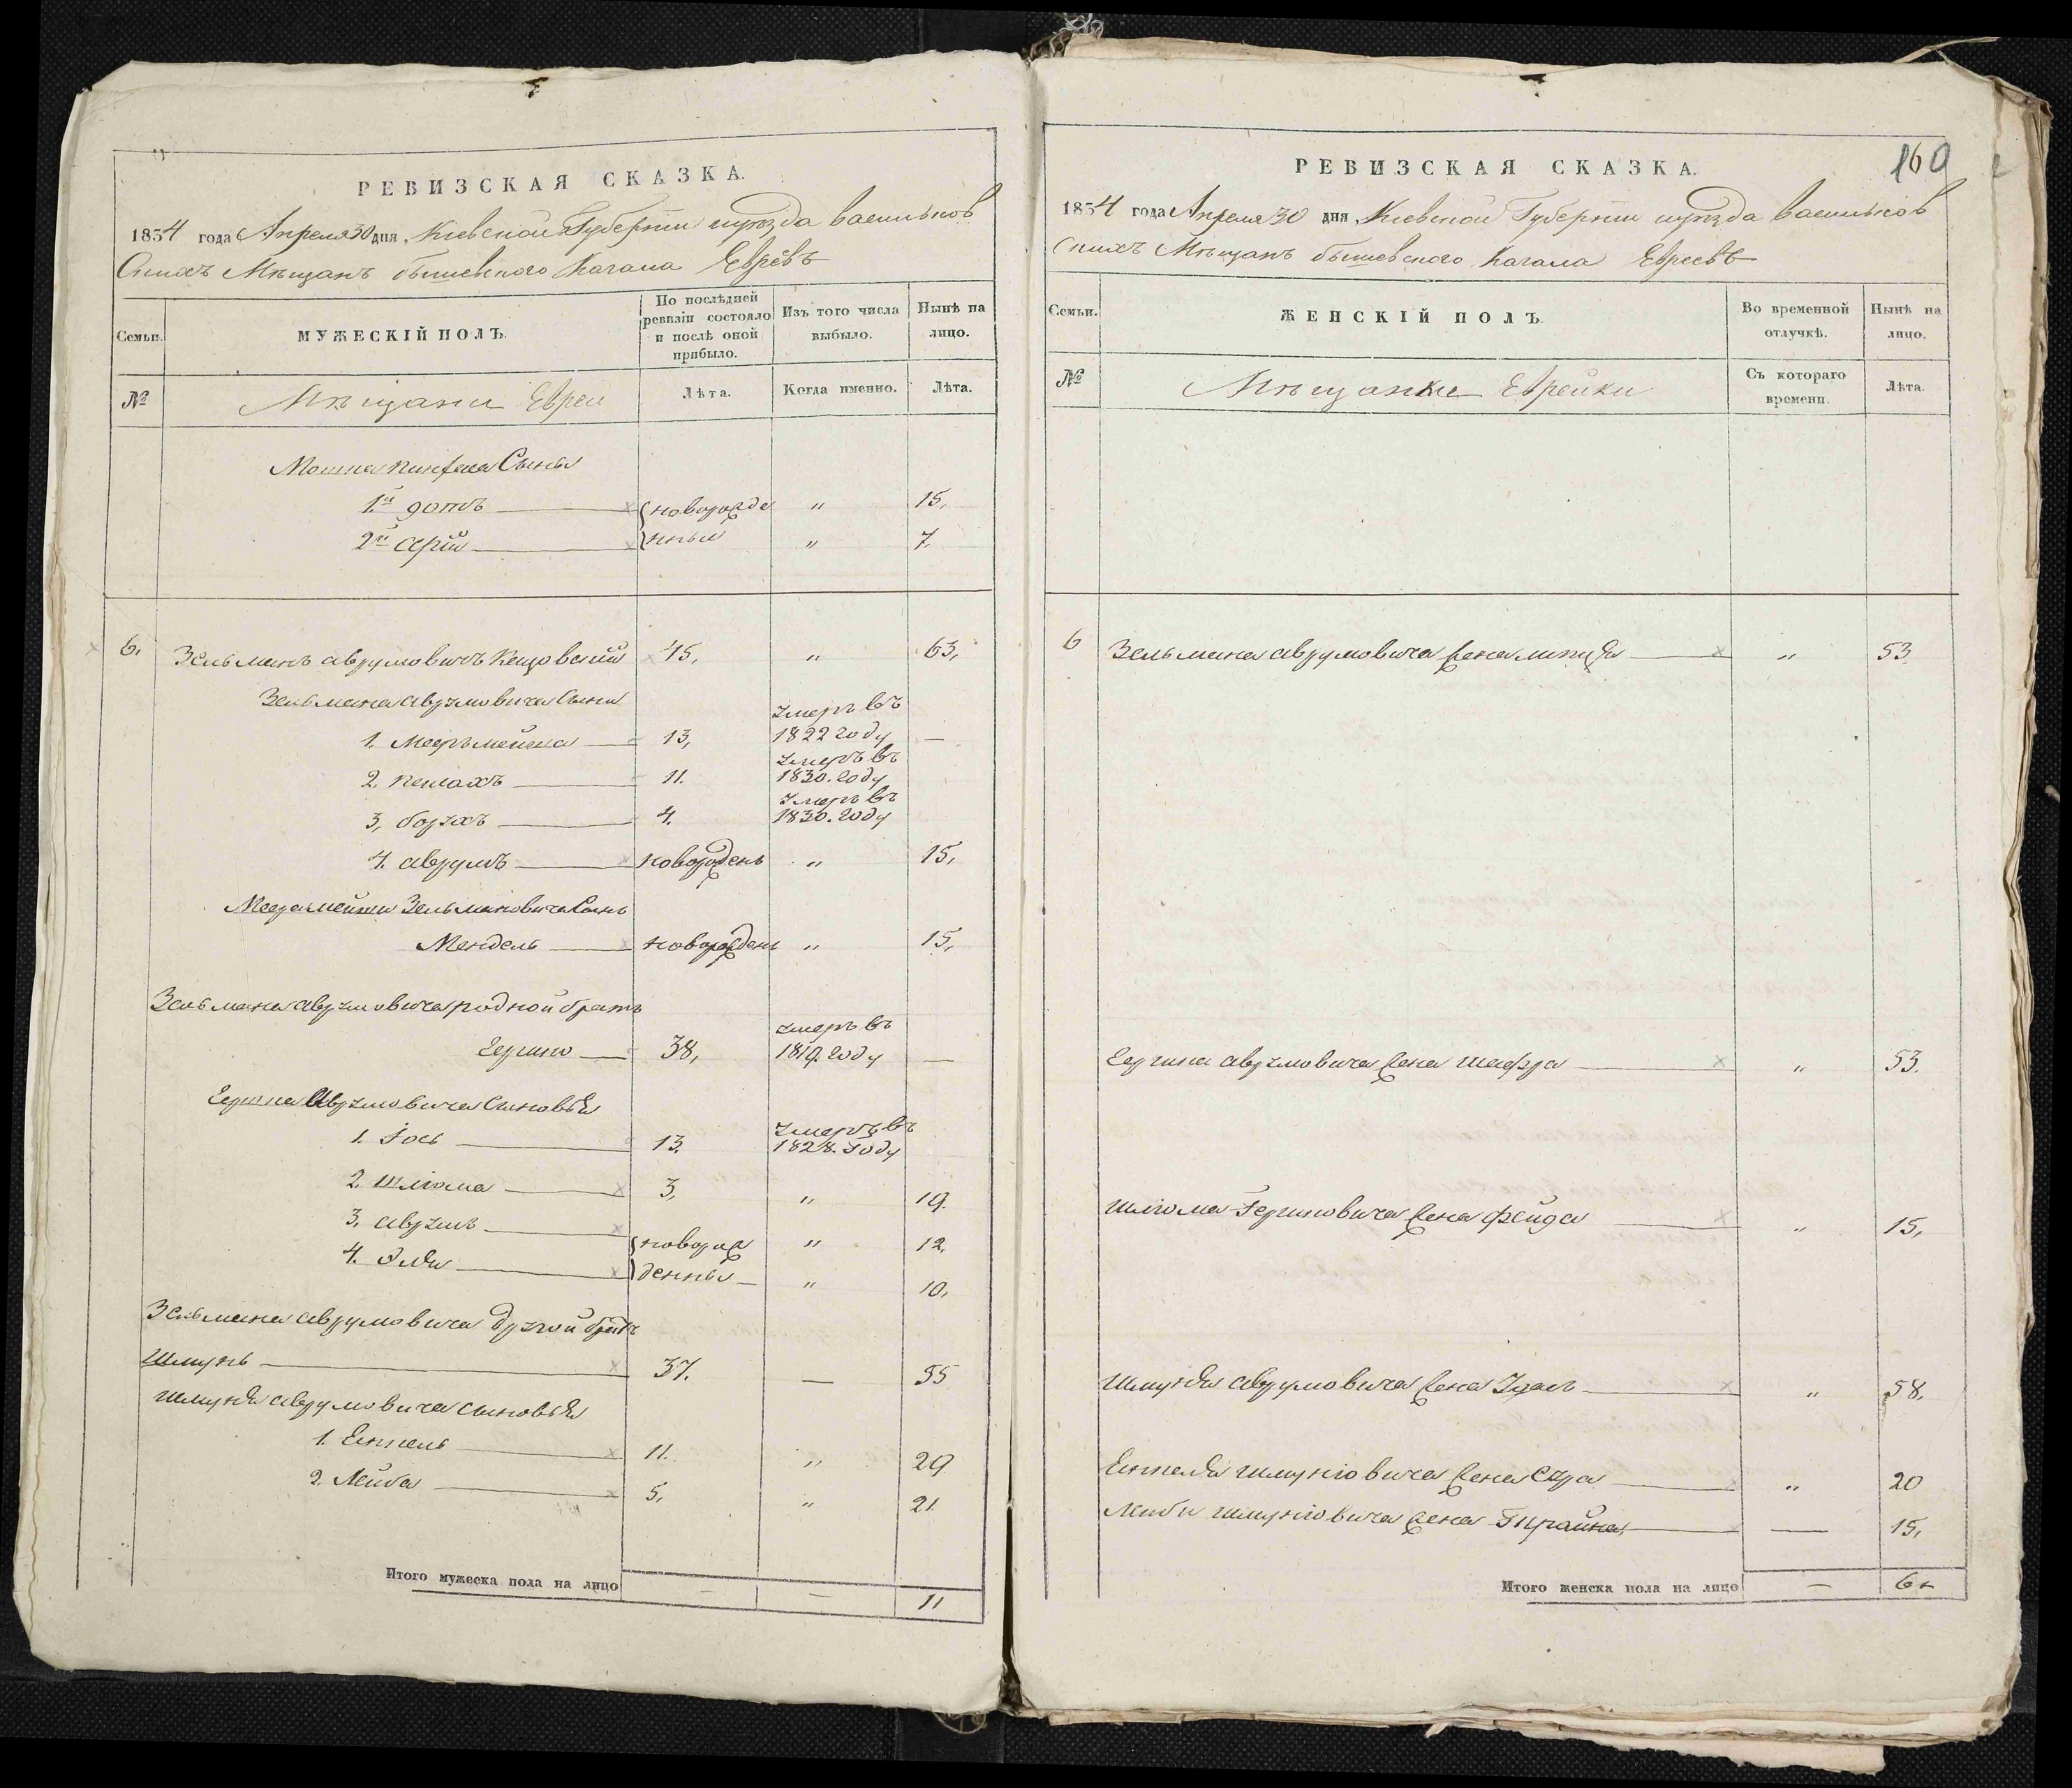 РЕВИЗСКАЯ СКАЗКА.
1834 года Апреля 30 дня, Кіевской Губерніи уѣзда Васильков
Скихъ Мѣщанъ бышевского Кагала Евреѣвъ
Семьи.
МУЖЕСКІЙ ПОЛЪ.
По послѣдней ревизіи состояло и послѣ оной прибыло.
Изъ того числа выбыло.
Нынѣ на лицо.
№
Мѣщани Евреи
Лѣта.
Когда именно.
Лѣта.
Мошка Сыны
1й " 15,
2й " 7.
новорожде
нныи
6. Зельманъ Аврумовичъ 45, " 63,
Зельмана Аврумовича Сыны
1. Мееръ 13, умеръ въ 1822 году —
2. Песахъ 11. умеръ въ 1830. году
3, борухъ 4. умеръ въ 1830. году
4. Аврумъ новорожденъ " 15,
Зельмановича Сынъ
Мендель новорожденъ " 15,
Зельмана Аврумовича родной братъ
38, умеръ въ 1819. году —
Аврумовича сыновья
1. Іось 13. умеръ въ 1828. году
2. Шліома 3, " 19.
3. Аврумъ " 12,
4. Эля " 10,
новорож
денныи
Зельмана Аврумовича другой братъ
Шмунь 37. — 55
Шмуня Аврумовича сыновья
1. 11. " 29
2. Лейба 5, " 21.
Итого мужеска пола на лицо — — 11
160
РЕВИЗСКАЯ СКАЗКА.
1834 года Апреля 30 дня, Кіевской Губерніи уѣзда Васильков
Скихъ Мѣщанъ бышевского Кагала Евреевъ
Семьи.
ЖЕНСКІЙ ПОЛЪ.
Во временной отлучкѣ.
Нынѣ на лицо.
№
Мѣщанки Еврейки
Съ котораго времени.
Лѣта.
6 Зельмана Аврумовича жена " 53
Аврумовича жена Шифра " 53.
Шліома жена Фейга " 15,
Шмуня Аврумовича жена " 58,
Шмуніовича жена Сура " 20
Лейби Шмуніовича жена — 15,
Итого женска пола на лицо — 6